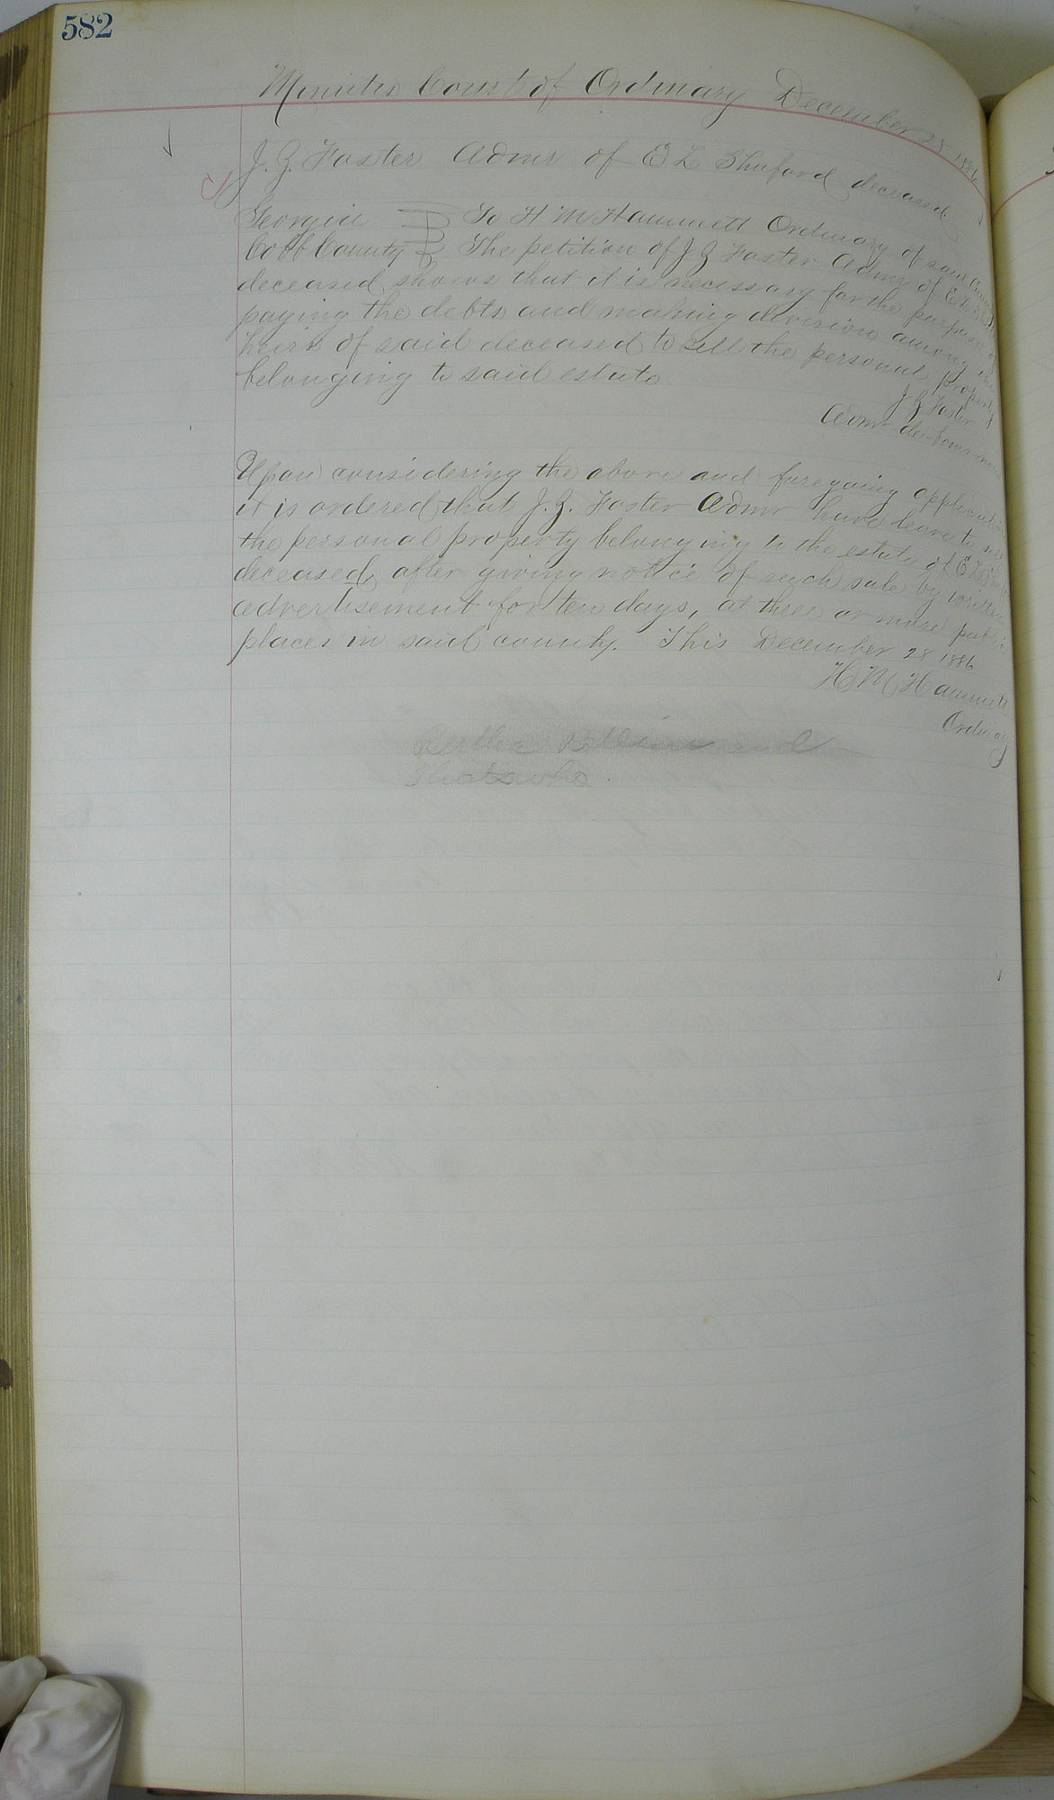 582
Minutes Court of Ordinary December 28 1886
J. Z. Foster Admr of E L Shuford deceased
Georgia To H M Hammett Ordinary of said County
Cobb County The petition of J Z Foster Admr of E L
deceased, shows that it is necessary for the purpose of
paying the debts and making division among the
heirs of said deceased to sell the personal property
belonging to said estate
J Z Foster
Admr de bonis non
Upon considering the above and foregoing application
it is ordered that J. Z. Foster Admr have leave to
the personal property belonging to the estate of E L
deceased, after giving notice of such sale by written
advertisement for ten days, at three or more public
places in said county. This December 28 1886
H M Hammett
Ordinary